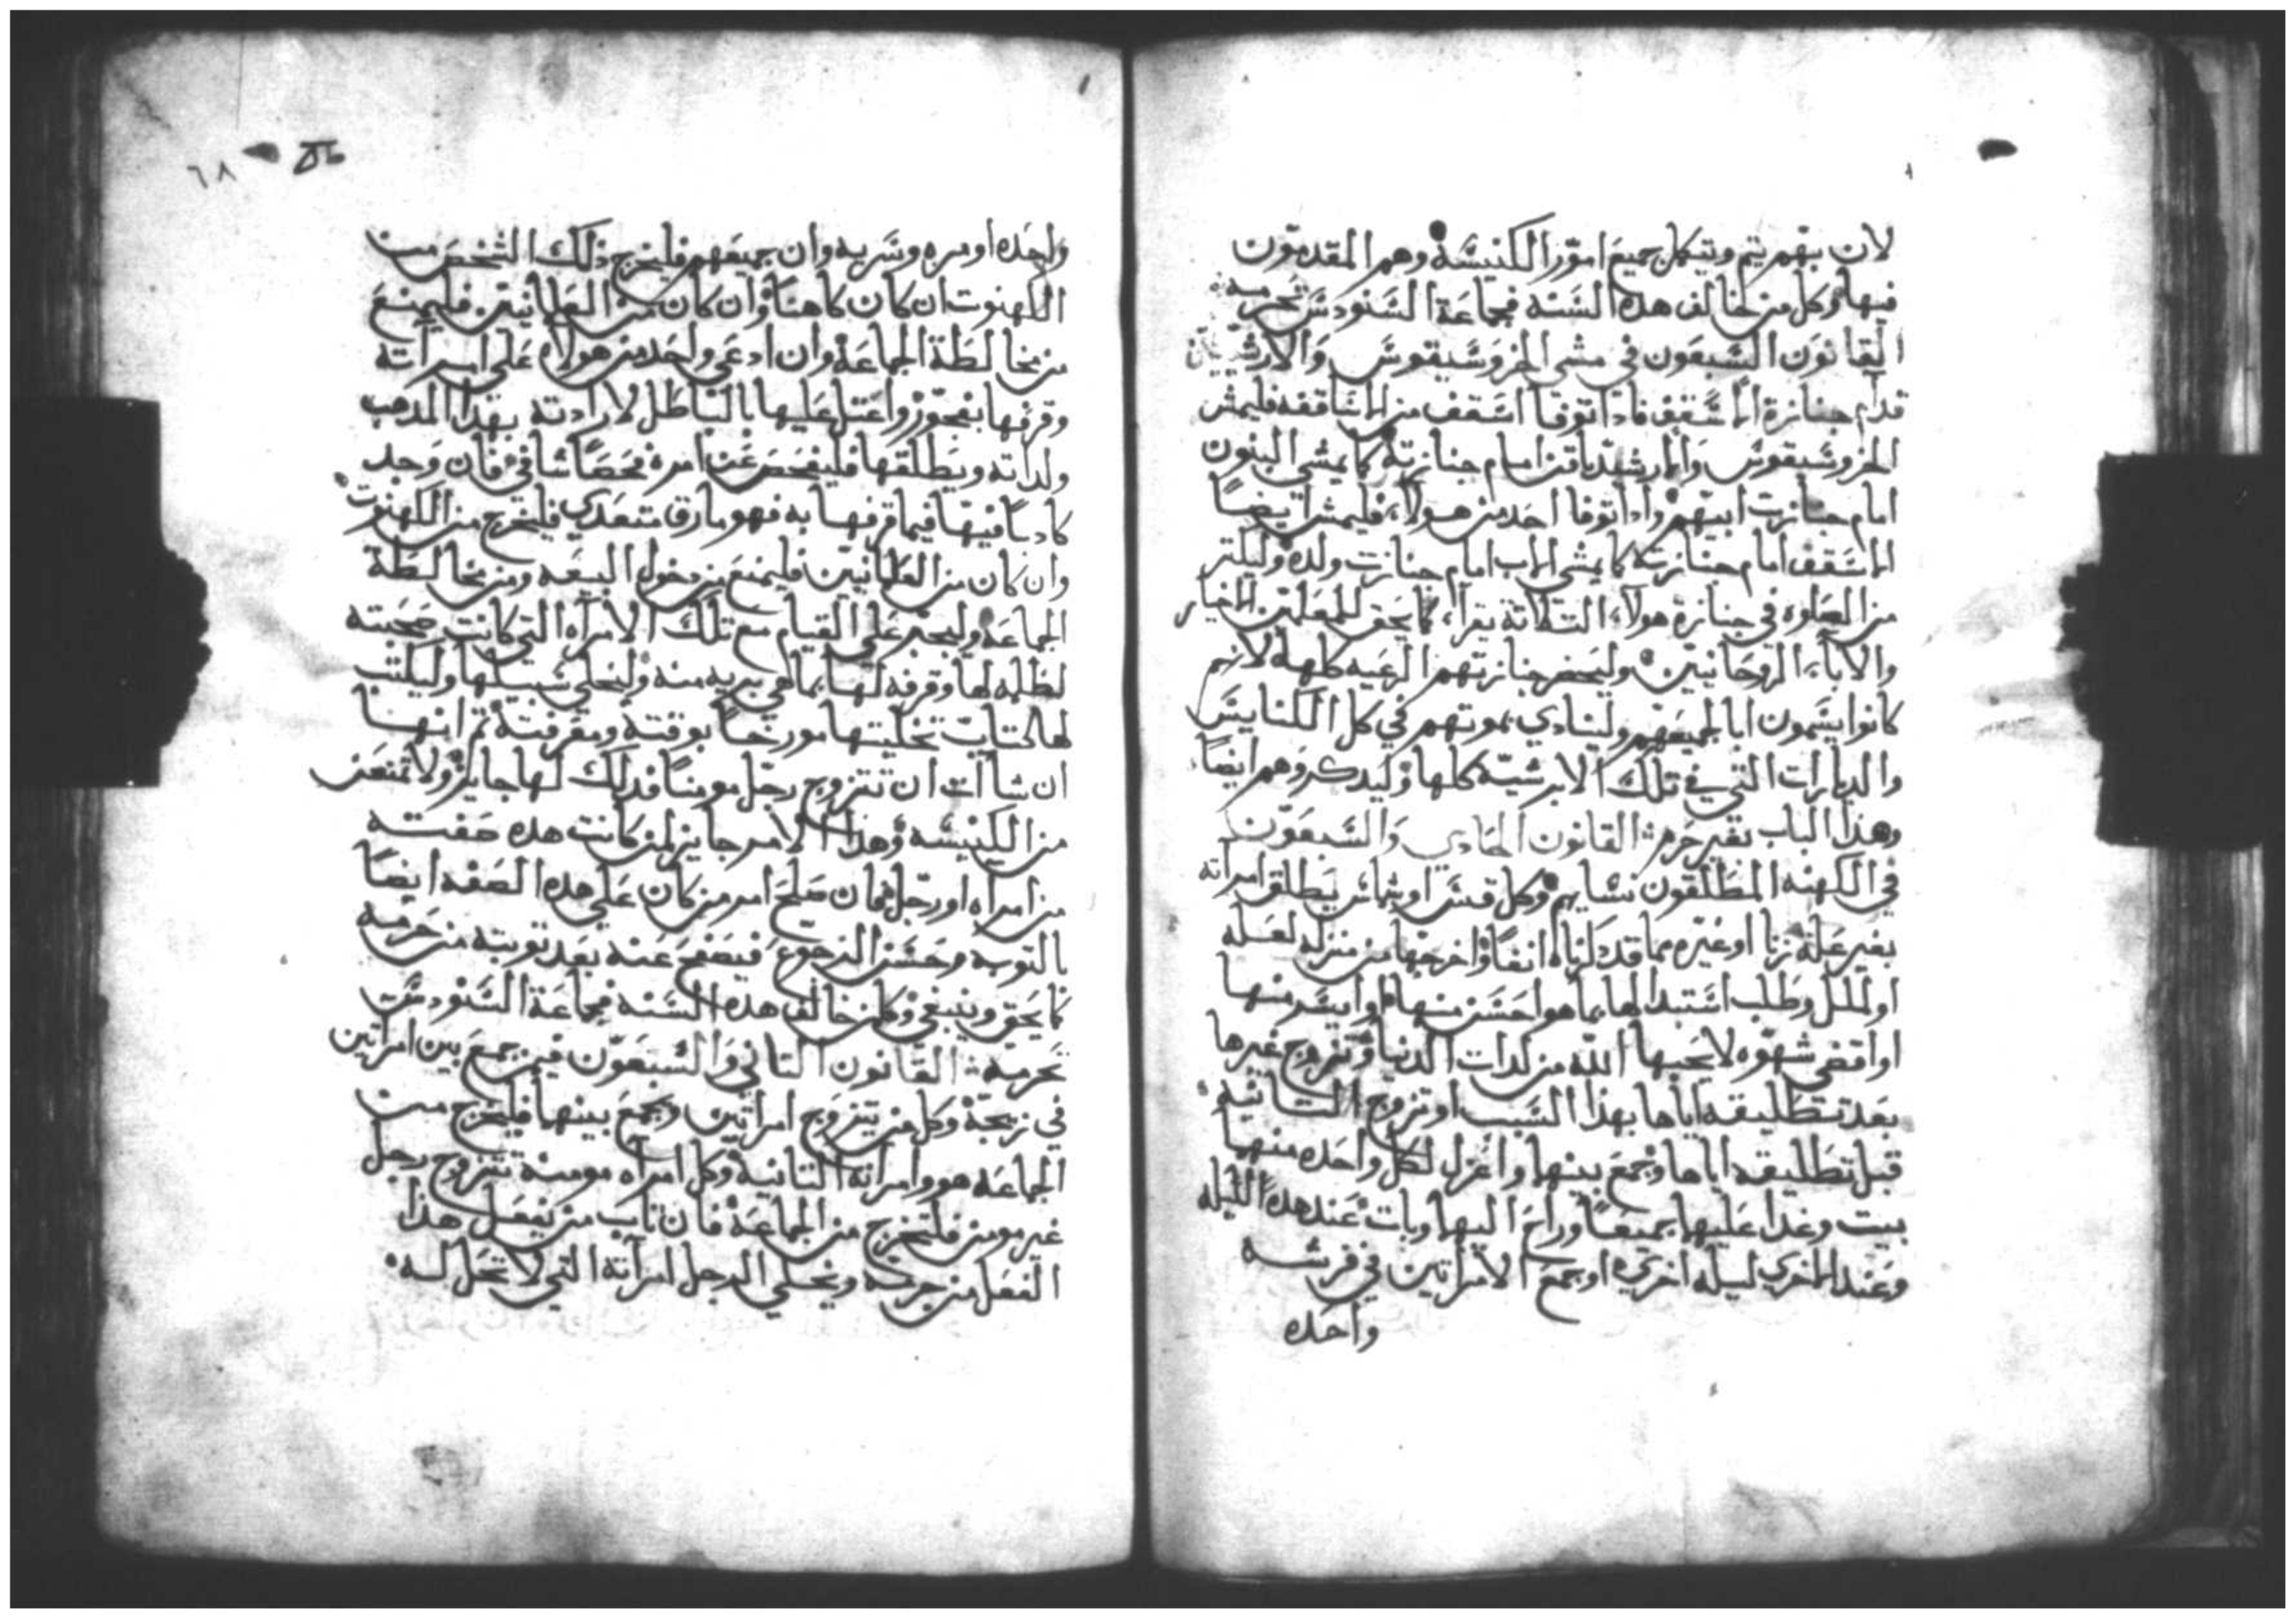 لان بهم يتم ويتكمل جميع امور الكنيسة وهم المقدمون
فيها وكل من خالف هده السنه فجماعة السنودس تحرمه
القانون السبعون في مشي الخروسبيقوس والارشيدياقن
قدام جنازة الاسقف فادا توفا اسقف من الاساقفه فليمش
الخروسبيقوس والارشيدياقن امام جنازته كما يمشي البنون
امام جنازت ابيهم وادا توفا احد من هولاء فليمش ايضاً
الاسقف امام جنازته كما يمشي الاب امام جنازت ولده وليكتر
من الصلوه في جنازة هولاء التلاتة يقرا كما يحق للمعلمين الاخيار
والاباء الروحانيين وليحضر جنازتهم الرعيه كلها لانهم
كانوا يسمون ابا لجميعهم ولينادي بموتهم في كل الكنايس
والديارات التي في تلك الابرشيه كلها وليدكروهم ايضاً
وهذا الباب بغير حرم القانون الحادي والسبعون
في الكهنه المطلقون نسايهم وكل قس او شماس يطلق امراته
بغير علة زنا او غيره مما قد دكرناه انفاً واخرجها من منزله لعله
او لملل وطلب استبدالها بما هو احسن منها او ايسر منها
او اقضى شهوه لا يحبها الله من لدات الدنيا وتزوج غيرها
بعد تطليقه اياها بهذا السبب او تزوج التانيه
قبل تطليقه اياها وجمع بينهما واعزل لكل واحده منهما
بيت وغدا عليهما جميعاً وراح اليهما وبات عند هده الليله
وعند الاخري ليله اخري او جمع الامراتين في فرشه
واحده
٦٨
واحده او مره وسريه وان جميعهم فليخرج ذلك الشخص من
الكهنوت ان كان كاهناً وان كان من العلمانيين فليمنع
من مخالطة الجماعة وان ادعي واحد من هولاء علي امراته
وقرفها بفجور واعتل عليها بالباطل لارادته بهذا المدهب
ولداته ويطلقها فليفحص عن امره فحصاً شافي فان وجد
كادباً فيها فيما قرفها به فهو مارق متعدي فليخرج من الكهنوت
وان كان من العلمانيين فليمنع من دخول البيعه ومن مخالطة
الجماعه وليجبر علي القيام مع تلك الامراه التي كانت صحبته
لظلمه لها وقرفه لها بما هي بريه منه وليخلي سبيلها وليكتب
لها كتاب تخليتها مورخاً بوقته ومعرفته تم انها
ان شاات ان تتزوج رجل مومناً فدلك لها جايز ولا تمنع من
من الكنيسه وهذا الامر جايز لمن كانت هده صفته
من امراه او رجل فان صلح امر من كان علي هده الصفه ايضاً
بالتوبه وحسن الرجوع فيصفح عنه بعد توبته من حرمه
كما يحق وينبغي وكل من خالف هده السنه فجماعة السنودس
تحرمه القانون التاني والسبعون فيمن جمع بين امراتين
في زيجة وكل من يتزوج امراتين وجمع بينهما فليخرج من
الجماعه هو وامراته التانية وكل امراه مومنة تتزوج رجل
غير مومن فلتخرج من الجماعة فان تاب من يفعل هذا
الفعل من جرمه ويخلي الرجل امراته التي لا تحل له